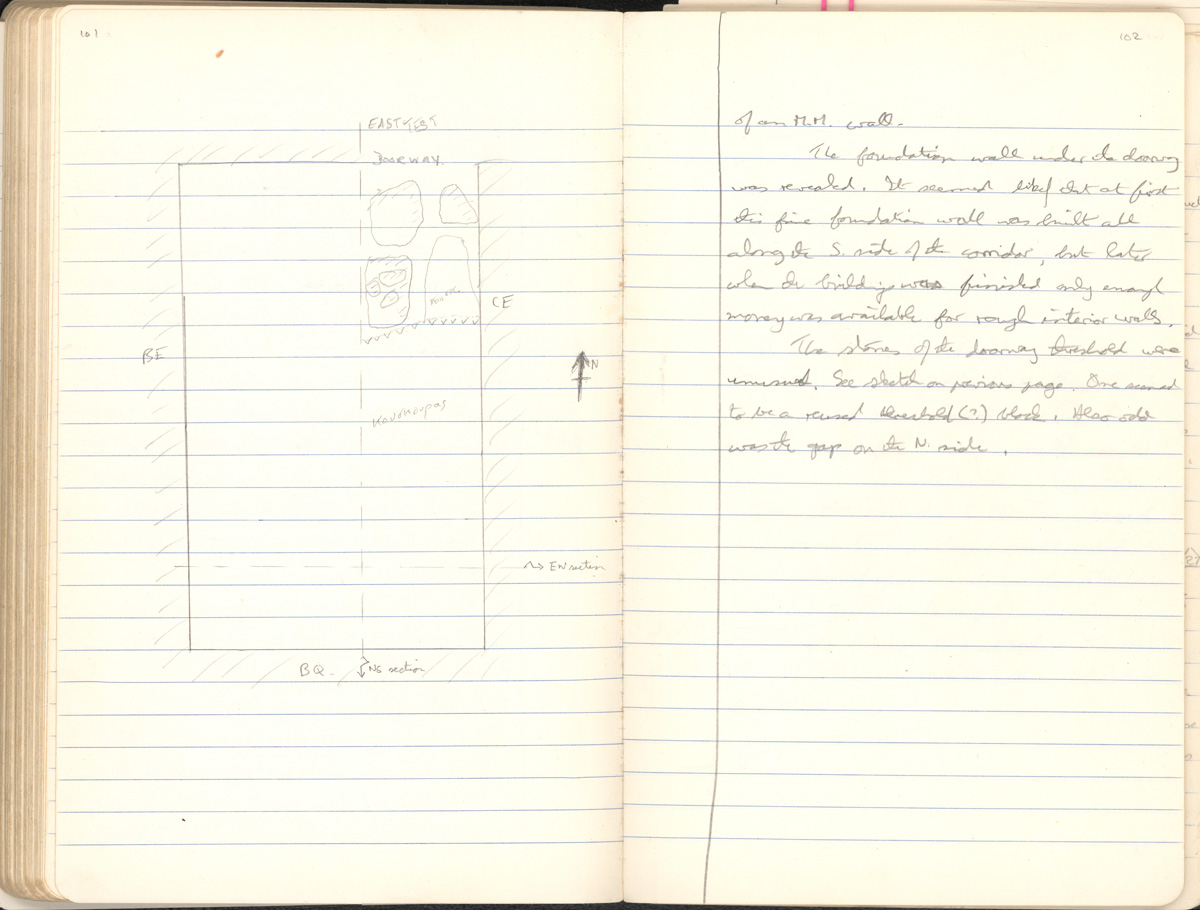 101
EAST TEST
DOORWAY.
CE
BE
N
Kouskouras
EW section
BQ.
NS section
102
of an M.M. wall.
The foundation wall under the doorway
was revealed. It seemed likely that at first
this fine foundation wall was built all
along the S. side of the corridor, but later
when the building was finished only enough
money was available for rough interior walls.
The stones of the doorway threshold were
unusual. See sketch on previous page. One seemed
to be a reused threshold (?) block. Also odd
was the gap on the N. side.